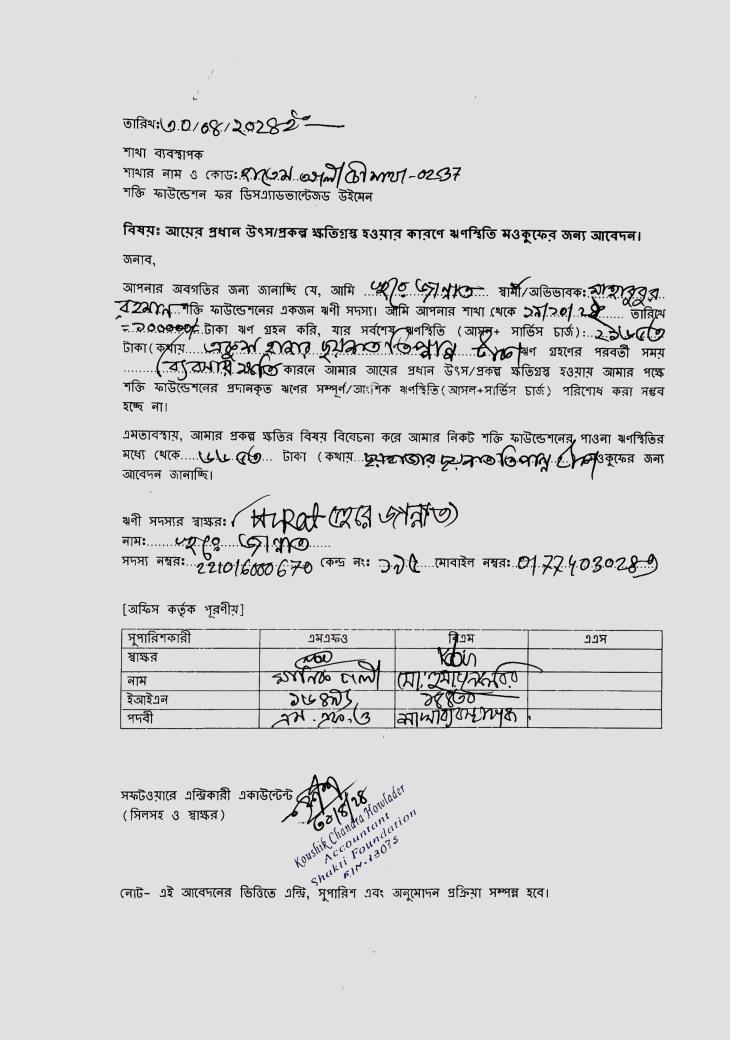 তারিখ: ৩০/০৪/২০২৪ ইং
শাখা ব্যবস্থাপক
শাখার নাম ও কোড: হাতেম আলী চৌমাথা-0237
শক্তি ফাউন্ডেশন ফর ডিসএ্যাডভান্টেজড উইমেন
বিষয়: আয়ের প্রধান উৎস/প্রকল্প ক্ষতিগ্রস্থ হওয়ার কারণে ঋণস্থিতি মওকুফের জন্য আবেদন।
জনাব,
আপনার অবগতির জন্য জানাচ্ছি যে, আমি নুরে জান্নাত স্বামী/অভিভাবক: মাহাবুবুর
রহমান শক্তি ফাউন্ডেশনের একজন ঋণী সদস্য। আমি আপনার শাখা থেকে তারিখে
টাকা ঋণ গ্রহন করি, যার সর্বশেষ ঋণস্থিতি (আসল+ সার্ভিস চার্জ): ২১৬৫৩
টাকা(কথায় একুশ হাজার ছয়শত তিপ্পান্ন টাকা ঋণ গ্রহণের পরবর্তী সময়
ব্যবসায় ক্ষতি কারনে আমার আয়ের প্রধান উৎস/প্রকল্প ক্ষতিগ্রস্থ হওয়ায় আমার পক্ষে
শক্তি ফাউন্ডেশনের প্রদানকৃত ঋণের সম্পূর্ণ/আংশিক ঋণস্থিতি(আসল+সার্ভিস চার্জ) পরিশোধ করা সম্ভব
হচ্ছে না।
এমতাবস্থায়, আমার প্রকল্প ক্ষতির বিষয় বিবেচনা করে আমার নিকট শক্তি ফাউন্ডেশনের পাওনা ঋণস্থিতির
মধ্যে থেকে ৬৬৫৩ টাকা (কথায় ছয়হাজার ছয়শত তিপান্ন টাকা মওকুফের জন্য
আবেদন জানাচ্ছি।
ঋণী সদস্যর স্বাক্ষর: (নুরে জান্নাত)
নাম: নুরে জান্নাত
সদস্য নম্বর: 221016000670 কেন্দ্র নং: ১৯৫ মোবাইল নম্বর:
[অফিস কর্তৃক পূরণীয়]
সুপারিশকারী এমএফও বিএম এএস
স্বাক্ষর
নাম মানিক আলী মো: হুমায়ুন কবির
ইআইএন
পদবী এম.এফ.ও শাখা ব্যবস্থাপক
সফটওয়ারে এন্ট্রিকারী একাউন্টেন্ট
(সিলসহ ও স্বাক্ষর) ৩০/৪/২৪
Koushik Chandra Howlader
Accountant
Shakti Foundation
EIN-13075
নোট- এই আবেদনের ভিত্তিতে এন্ট্রি, সুপারিশ এবং অনুমোদন প্রক্রিয়া সম্পন্ন হবে।